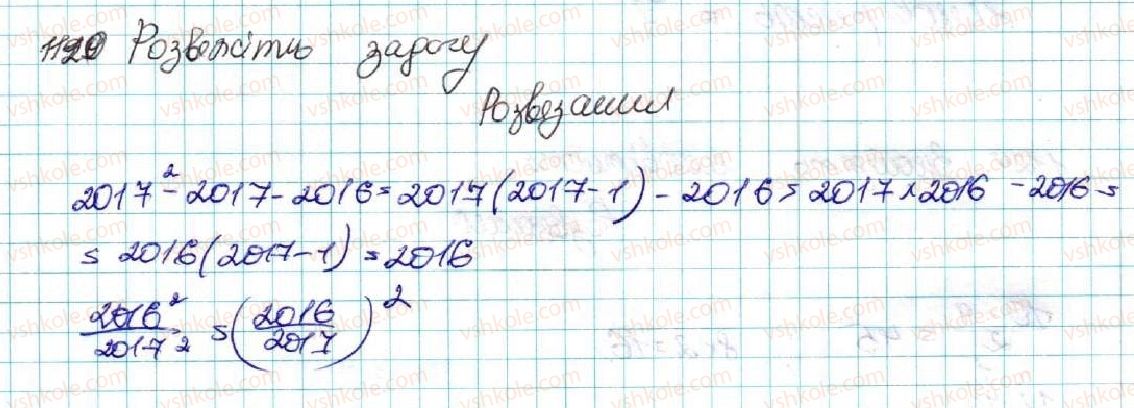 1120 Розвяжіть задачу
Розвязання
2017² - 2017 - 2016 = 2017(2017 - 1) - 2016 = 2017 × 2016 - 2016 =
= 2016(2017 - 1) = 2016
2016² / 2017² = (2016 / 2017)²